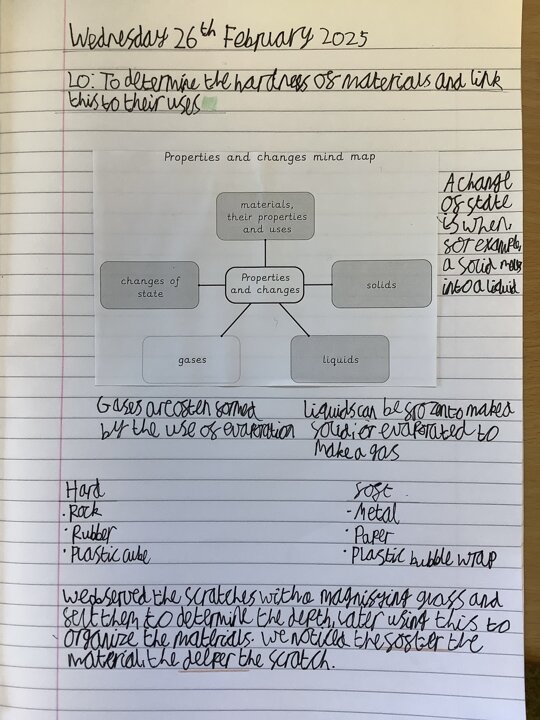 Wednesday 26th February 2025
LO: To determine the hardness of materials and link
this to their uses
Properties and changes mind map
materials,
their properties
and uses
changes of
state
Properties
and changes
solids
gases
liquids
A change
of state
is when,
for example,
a solid melts
into a liquid
Gases are often formed
by the use of evaporation
Liquids can be frozen to make a
solid, or evaporated to
make a gas
Hard
· Rock
· Rubber
· Plastic cube
Soft
· Metal
· Paper
· Plastic bubble wrap
We observed the scratches with a magnifying glass and
felt them to determine the depth, later using this to
organize the materials. We noticed the softer the
material, the deeper the scratch.